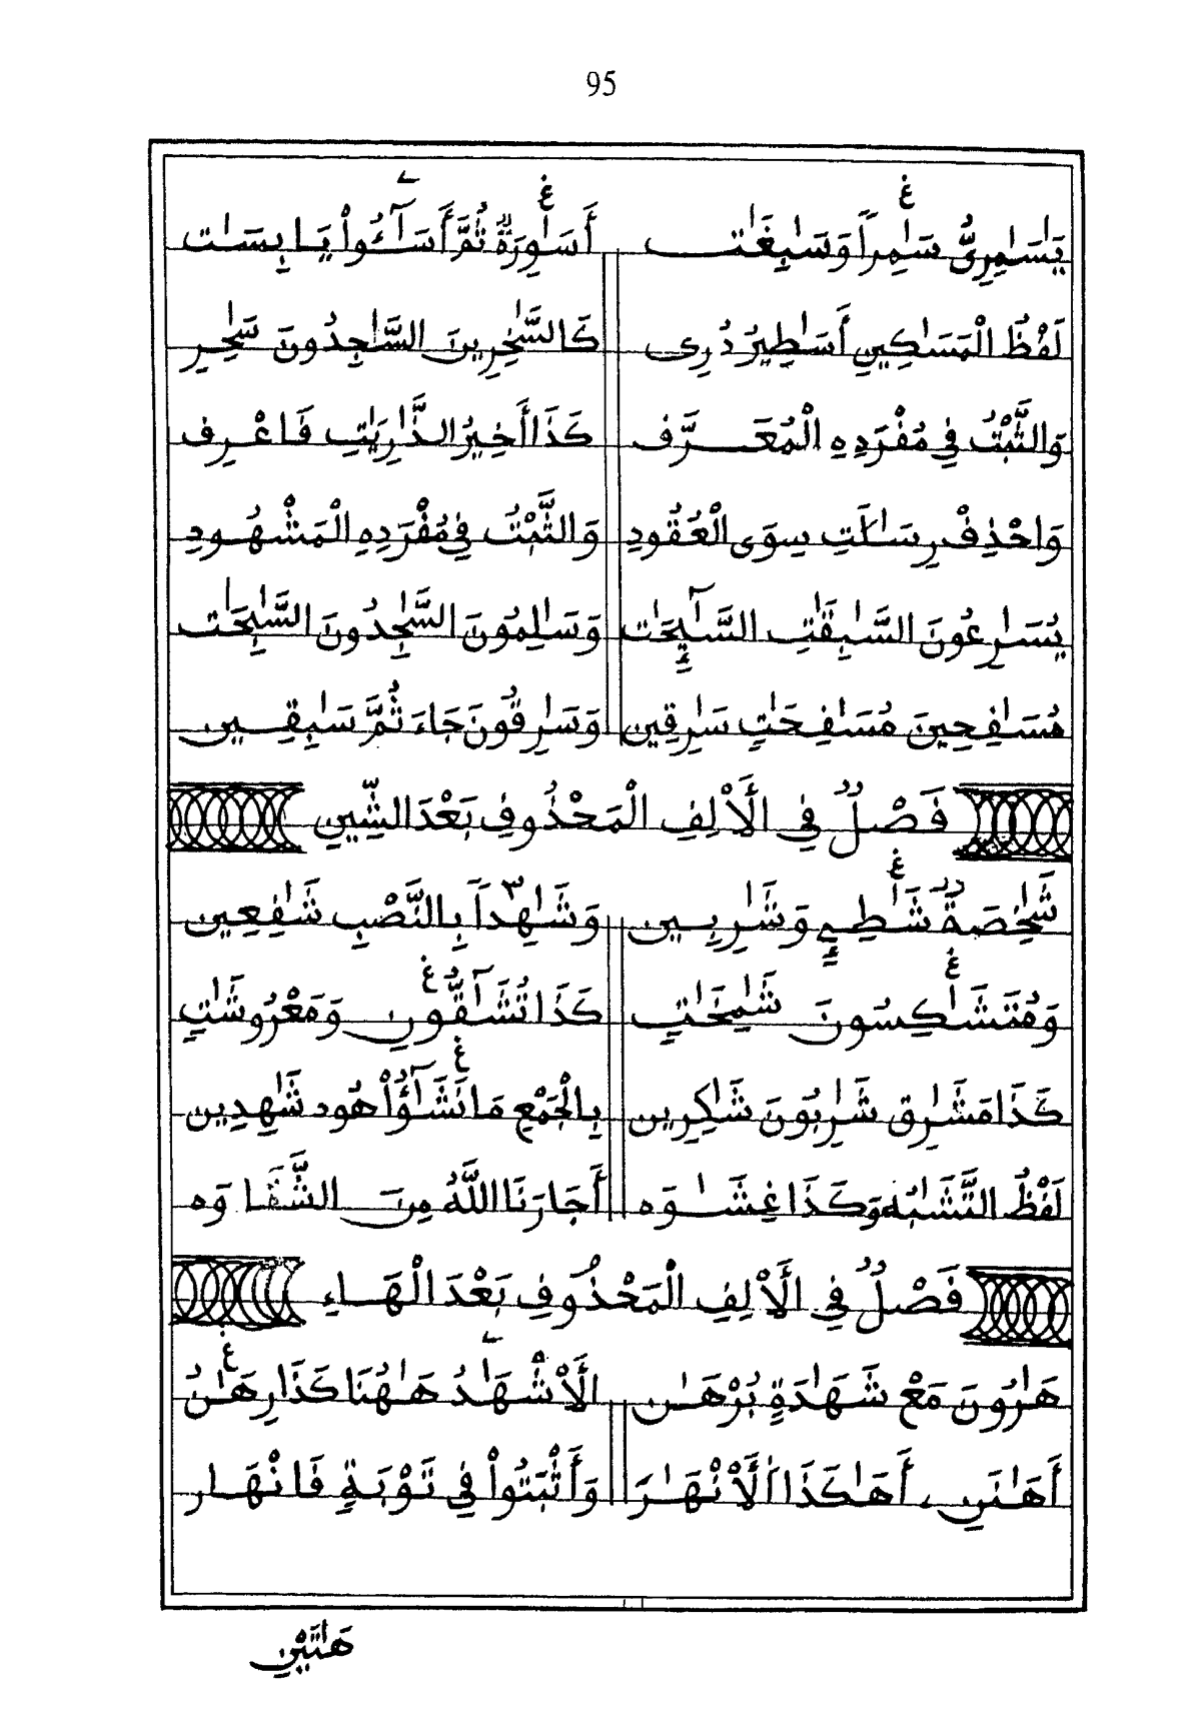 95
يَٰسَٰمِرِيُّ سَٰمِراً وَسَٰبِغَٰت أَسَٰوِرَةٌ ثُمَّ أَسَٰٓـُٔواْ يَا بِسَٰت
لَفْظُ الْمَسَٰكِينِ أَسَٰطِيرُ دُرِى كَالسَّٰخِرِينَ السَّٰجِدُونَ سَٰحِرِ
وَالثَّبْتُ فِي مُفْرَدِهِ الْمُعَرَّف كَذَا أَخِيرُ الذَّٰرِيَٰتِ فَاعْرِف
وَاحْذِفْ رِسَٰلَٰتِ سِوَى الْعُقُودِ وَالثَّبْتُ فِي مُفْرَدِهِ الْمَشْهُودِ
يُسَٰرِعُونَ السَّٰبِقَٰتِ السَّٰٓئِحَٰت وَسَٰلِمُونَ السَّٰجِدُونَ السَّٰبِحَٰت
مُسَٰفِحِينَ مُسَٰفِحَٰتٍ سَٰرِقِين وَسَٰرِقُونَ جَاءَ ثُمَّ سَٰبِقِين
فَصْلٌ فِي الَْألِفِ الْمَحْذُوفِ بَعْدَ الشِّينِ
شَٰخِصَةٌ شَٰطِئِ وَشَٰرِبِين وَشَٰهِداً بِالنَّصْبِ شَٰفِعِين
وَمُتَشَٰكِسُونَ شَٰمِخَٰتٍ كَذَا تُشَٰٓقُّونِ وَمَعْرُوشَٰتٍ
كَذَا مَشَٰرِق شَٰرِبُونَ شَٰكِرِين بِالْجَمْعِ مَا نَشَٰٓؤُاْ هُود شَٰهِدِين
لَفْظُ التَّشَٰبُهِ وَكَذَا غِشَٰوَه أَجَارَنَا اللَّهُ مِنَ الشَّقَاوَه
فَصْلٌ فِي الَْألِفِ الْمَحْذُوفِ بَعْدَ الْهَاءِ
هَٰرُونَ مَعْ شَهَٰدَةٍ بُرْهَٰن الَْأشْهَٰدُ هَٰهُنَا كَذَا رِهَٰنُ
أَهَٰنَنِ، أَهَٰكَذَا الَْأنْهَٰرَ وَأَثْبَتُواْ فِي تَوْبَةٍ فَانْهَار
هَٰتَيْنِ